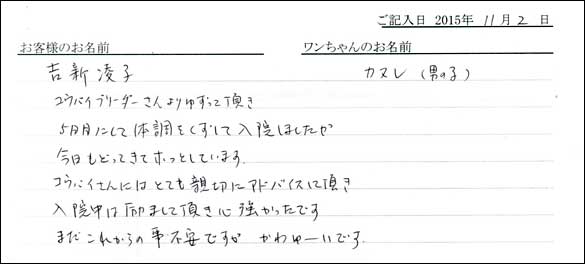 ご記入日 2015年 11月 2日
お客様のお名前 ワンちゃんのお名前
吉新凌子 カヌレ(男の子)
コウバイブリーダーさんよりゆずって頂き
5日目にして体調をくずして入院しましたが
今日もどってきてホッとしています。
コウバイさんにはとても親切にアドバイスして頂き
入院中は励まして頂き心強かったです
まだこれからの事不安ですが かわゆーいです。